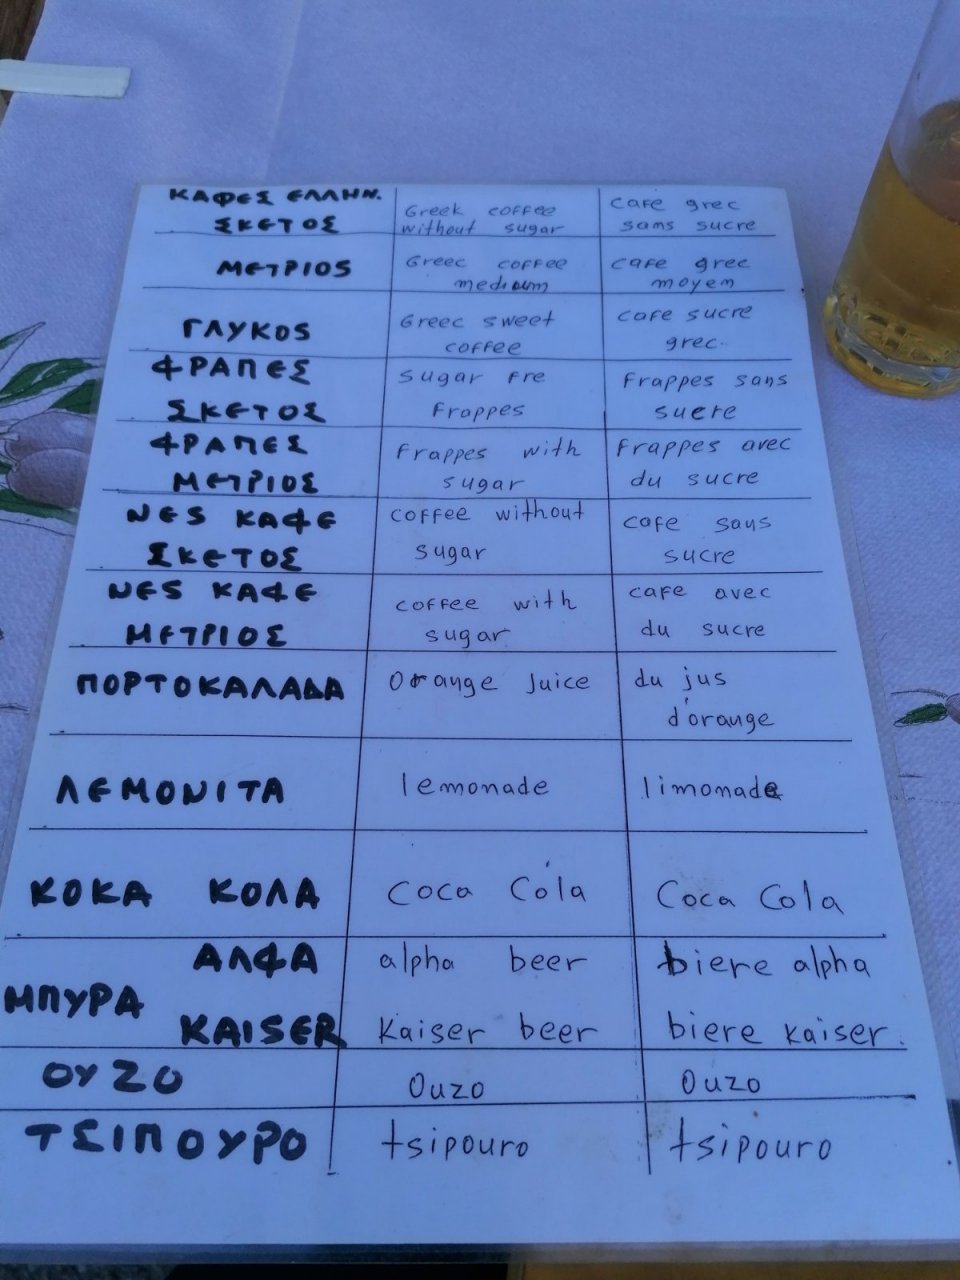 ΚΑΦΕΣ ΕΛΛΗΝ.
ΣΚΕΤΟΣ
Greek coffee
without sugar
cafe grec
sans sucre
ΜΕΤΡΙΟS
Greec coffee
medium
cafe grec
moyen
ΓΛΥΚΟS
Greec sweet
coffee
cafe sucre
grec.
ΦΡΑΠΕΣ
ΣΚΕΤΟΣ
sugar fre
frappes
frappes sans
sucre
ΦΡΑΠΕΣ
ΜΕΤΡΙΟΣ
frappes with
sugar
frappes avec
du sucre
ΝΕS ΚΑΦΕ
ΣΚΕΤΟΣ
coffee without
sugar
cafe sans
sucre
ΝΕS ΚΑΦΕ
ΜΕΤΡΙΟΣ
coffee with
sugar
cafe avec
du sucre
ΠΟΡΤΟΚΑΛΑΔΑ
orange juice
du jus
d'orange
ΛΕΜΟΝΙΤΑ
lemonade
limonade
ΚΟΚΑ ΚΟΛΑ
Coca Cola
Coca Cola
ΑΛΦΑ
alpha beer
biere alpha
ΜΠΥΡΑ
KAISER
Kaiser beer
biere kaiser.
ΟΥΖΟ
Ouzo
Ouzo
ΤΣΙΠΟΥΡΟ
tsipouro
tsipouro